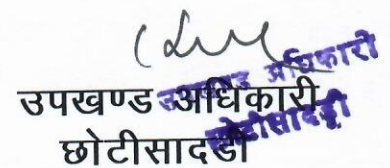 उपखण्ड अधिकारी
छोटीसादडी
उपखण्ड अधिकारी
छोटीसादड़ी